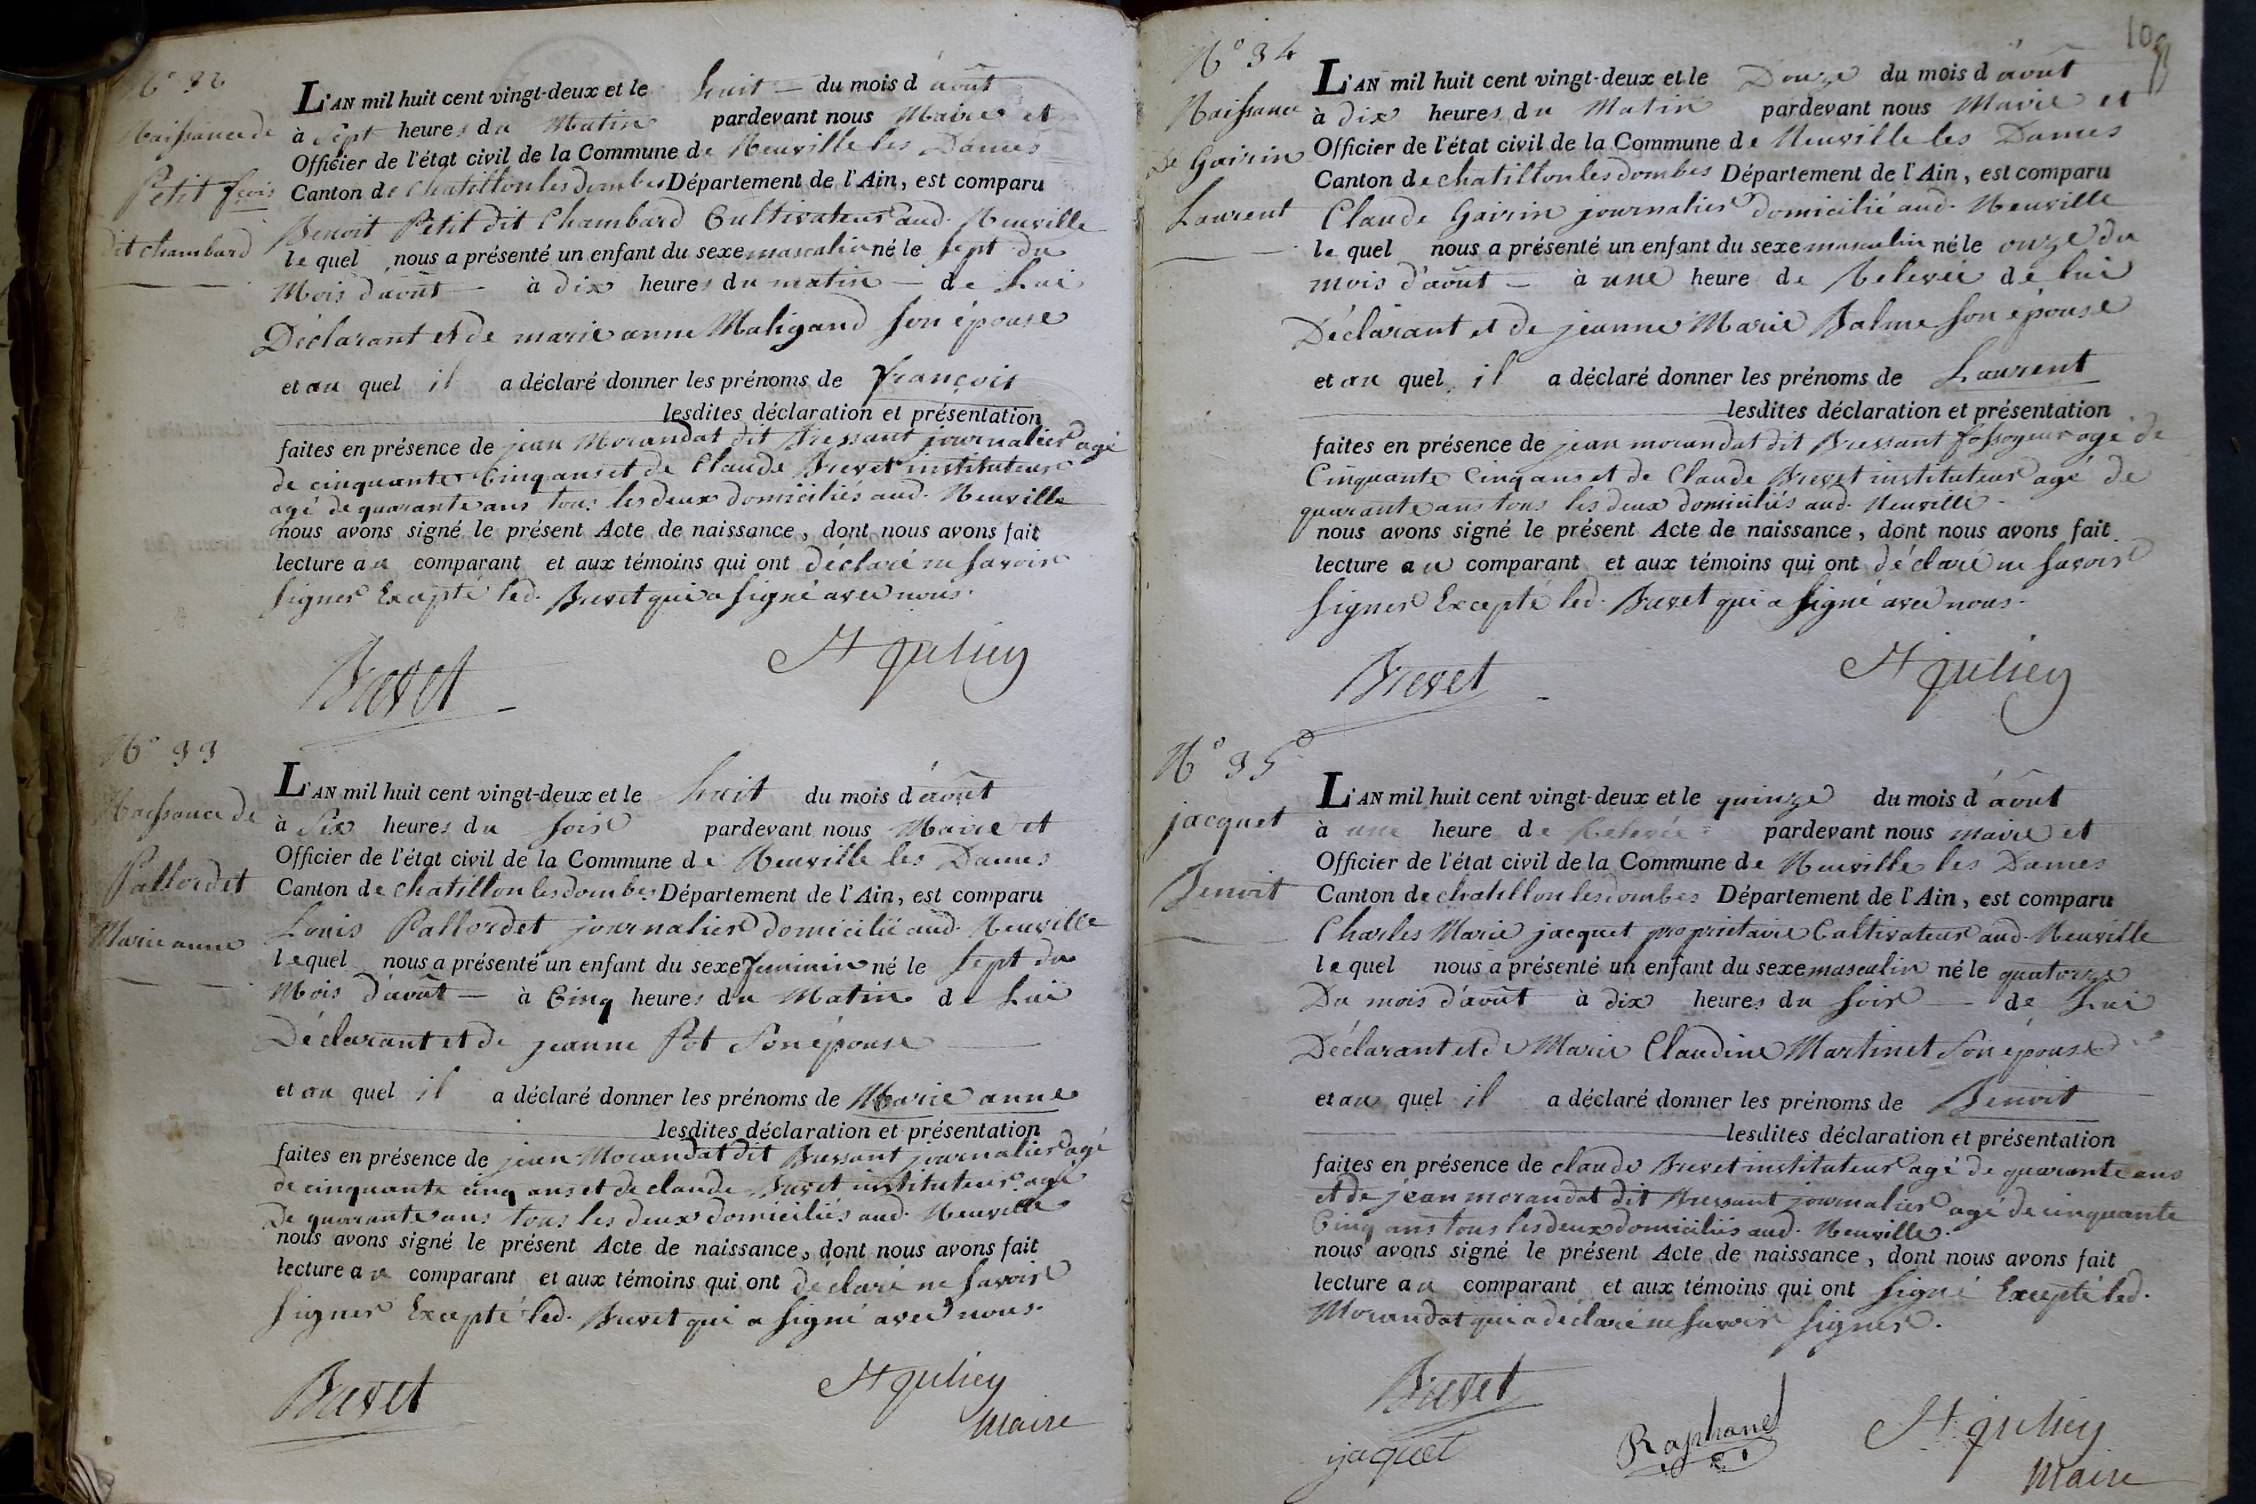 N.° 32
Naissance de
Petit fçois
dit chambard
L'AN mil huit cent vingt-deux et le huit du mois d'août
à Sept heures du Matin pardevant nous Maire et
Officier de l'état civil de la Commune de Neuville les Dames
Canton de chatillon les dombes Département de l'Ain, est comparu
Benoit Petit dit Chambard Cultivateur aud. Neuville
le quel nous a présenté un enfant du sexe masculin né le sept du
Mois d'août à dix heures du matin de Lui
Déclarant et de marie anne Maligand son épouse
et au quel il a déclaré donner les prénoms de françois
lesdites déclaration et présentation
faites en présence de jean Morandat dit Bressant journalier agé
de cinquante Cinq ans et de Claude Brevet instituteur
agé de quarante ans tous les deux domiciliés aud. Neuville
nous avons signé le présent Acte de naissance, dont nous avons fait
lecture au comparant et aux témoins qui ont déclaré ne savoir
signer Excepté led. Brevet qui a signé avec nous.
Brevet St julien
N° 33
Naissance de
Pallordet
Marie anne
L'AN mil huit cent vingt-deux et le huit du mois d'août
à Six heures du soir pardevant nous Maire et
Officier de l'état civil de la Commune de Neuville les Dames
Canton de chatillon les dombes Département de l'Ain, est comparu
Louis Pallordet journalier domicilié aud. Neuville
lequel nous a présenté un enfant du sexe feminin né le sept du
Mois d'août à Cinq heures du Matin de Lui
Déclarant et de jeanne Pot Son épouse
et au quel il a déclaré donner les prénoms de Marie anne
lesdites déclaration et présentation
faites en présence de jean Morandat dit Bressant journalier agé
de cinquante cinq ans et de claude Brevet instituteur agé
De quarante ans tous les deux domiciliés aud. Neuville
nous avons signé le présent Acte de naissance, dont nous avons fait
lecture au comparant et aux témoins qui ont déclaré ne savoir
signer Excepté led. Brevet qui a signé avec nous.
Brevet St julien
Maire
N° 34
Naissance
De Gairin
Laurent
L'AN mil huit cent vingt-deux et le Douze du mois d'août
à dix heures du Matin pardevant nous Maire et
Officier de l'état civil de la Commune de Neuville les Dames
Canton de chatillon les dombes Département de l'Ain, est comparu
Claude Gairin journalier domicilié aud. Neuville
le quel nous a présenté un enfant du sexe masculin né le onze du
mois d'août à une heure de Relevée de lui
Déclarant et de jeanne Marie Balme son épouse
et au quel il a déclaré donner les prénoms de Laurent
lesdites déclaration et présentation
faites en présence de jean morandat dit Bressant fossoyeur agé de
Cinquante Cinq ans et de Claude Brevet instituteur agé de
quarante ans tous les deux domiciliés aud. Neuville.
nous avons signé le présent Acte de naissance, dont nous avons fait
lecture au comparant et aux témoins qui ont déclaré ne savoir
signer Excepté led. Brevet qui a signé avec nous.
Brevet St julien
N° 35
jacquet
Benoit
L'AN mil huit cent vingt-deux et le quinze du mois d'août
à une heure de Relevée pardevant nous maire et
Officier de l'état civil de la Commune de Neuville les Dames
Canton de chatillon les dombes Département de l'Ain, est comparu
Charles Marie jacquet propriétaire Cultivateur aud. Neuville
le quel nous a présenté un enfant du sexe masculin né le quatorze
Du mois d'août à dix heures du soir de Lui
Déclarant et de Marie Claudine Martinet Son épouse
et au quel il a déclaré donner les prénoms de Benoit
lesdites déclaration et présentation
faites en présence de claude Brevet instituteur agé de quarante ans
et de jean morandat dit Bressant journalier agé de cinquante
Cinq ans tous les deux domiciliés aud. Neuville.
nous avons signé le présent Acte de naissance, dont nous avons fait
lecture au comparant et aux témoins qui ont signé Excepté led.
Morandat qui a déclaré ne savoir signer.
Brevet
jaquet Raphanel St julien
Maire